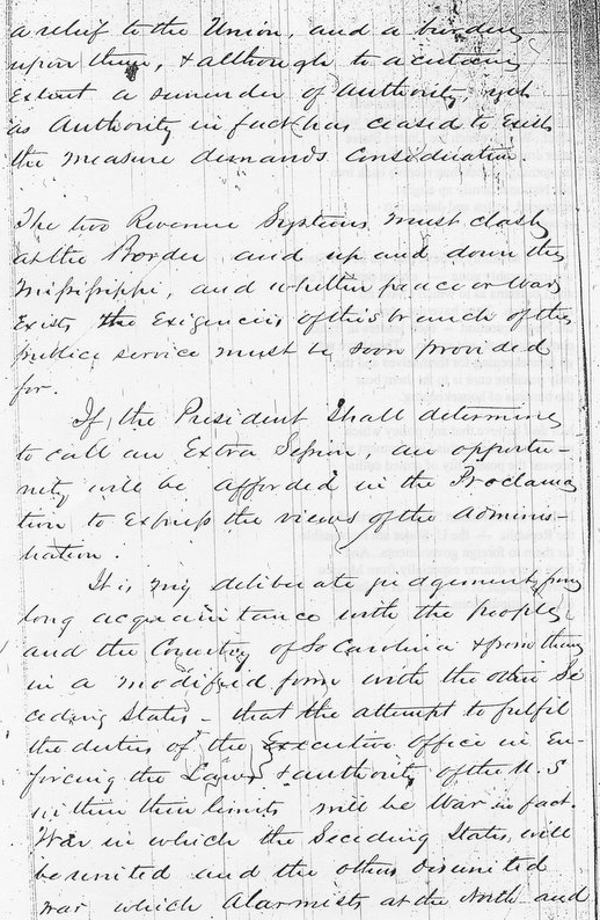 a relief to the Union, and a burden
upon them, & although to a certain
Extent a surrender of authority, yet
as Authority in fact has ceased to Exist
the measure demands Consideration.
The two Revenue Systems must clash
at the Border and up and down the
Mississippi, and whether peace or War
Exists the Exigencies of this branch of the
public service must be soon provided
for.
If, the President Shall determine
to call an Extra Session, an opportu-
nity will be afforded in the Proclama
tion to Express the views of the Adminis-
tration.
It is my deliberate judgement from
long acquaintance with the people
and the Country of So Carolina & from them
in a modified form with the other Se
ceding States - that the attempt to fulfil
the duties of the Executive Office in En-
forcing the Laws & authority of the U.S
within their limits will be War in fact.
War in which the Seceding States will
be united and the others disunited
war which Alarmists at the North and